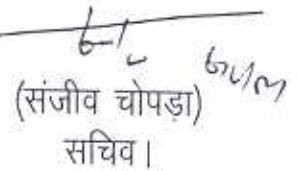 (संजीव चोपड़ा)
सचिव।